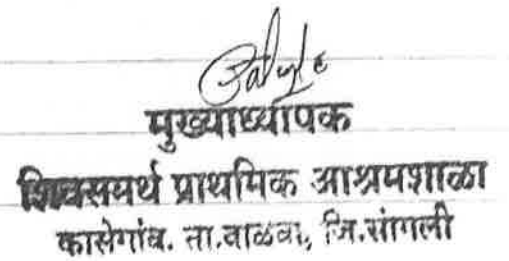 मुख्याध्यापक
शिवसमर्थ प्राथमिक आश्रमशाळा
कासेगांव. ता.वाळवा, जि.सांगली